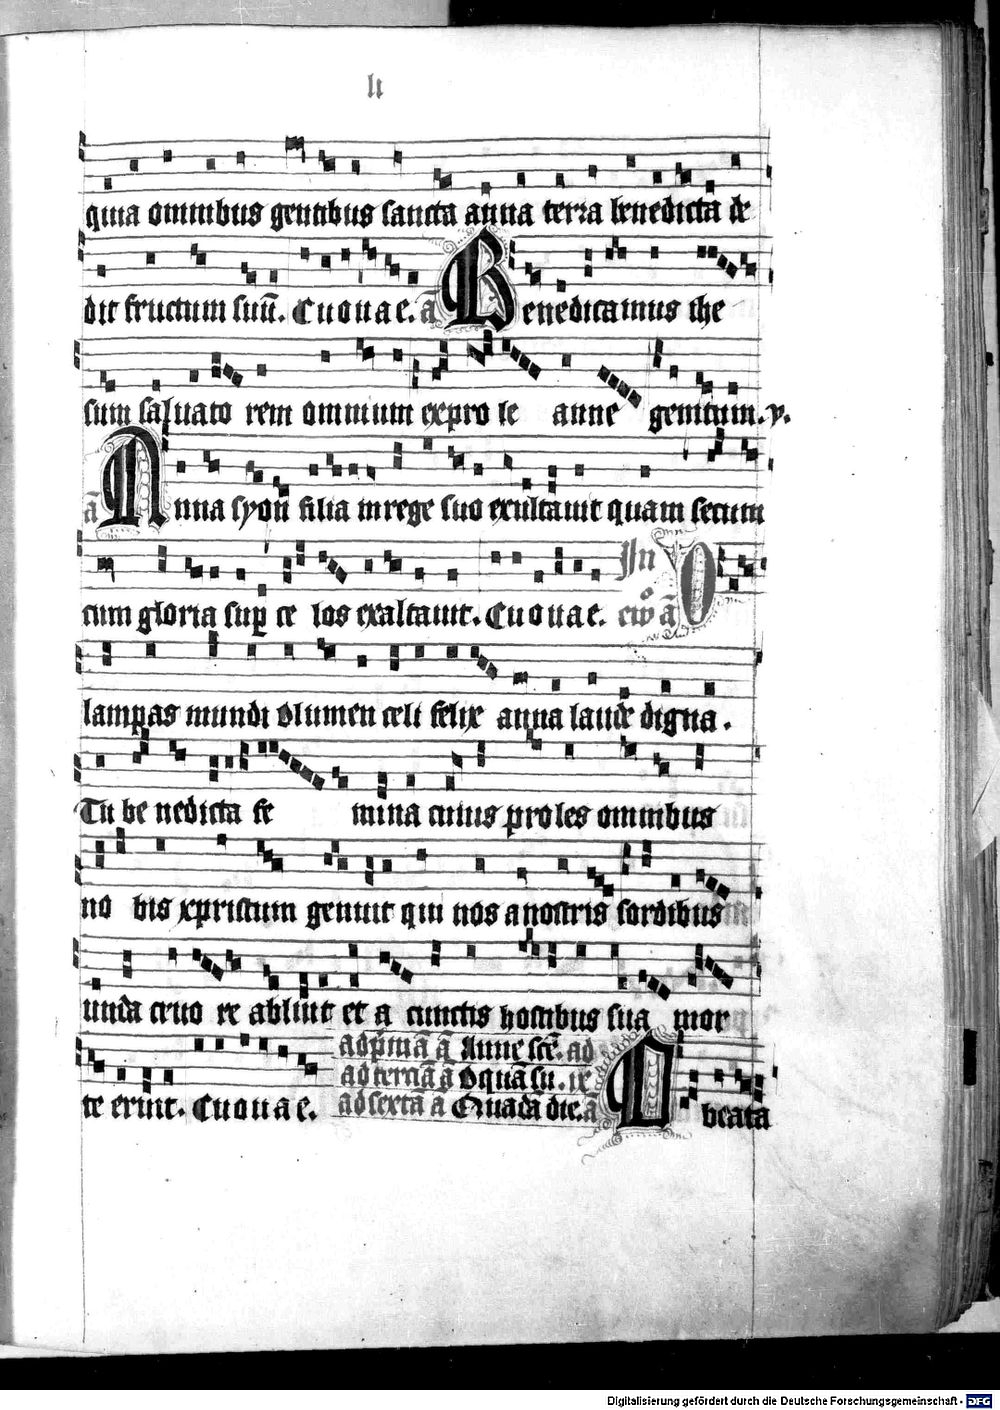 lı
quia omnibus gentibus sancta anna terra benedicta de
dit fructum suū. Euouae. ā Benedicamus ihe
sum saluato rem omnium expro le anne genitum. v.
ā Anna syon filia in rege suo exultauit quam secum
cum gloria sup ce los exaltauit. Euouae. In eōv ā O
lampas mundi o lumen celi felix anna laude digna.
Tu be nedicta fe mina cuius proles omnibus
no bis xpristum genuit qui nos a nostris sordibus
unda cruo re abluit et a cunctis hostibus sua mor
te eruit. Euouae. ad pͥmā ā Anne scē. ad
ad terciā ā O quā su. ix
ad sexta a Quadā die. ā A beata
Digitalisierung gefördert durch die Deutsche Forschungsgemeinschaft - DFG